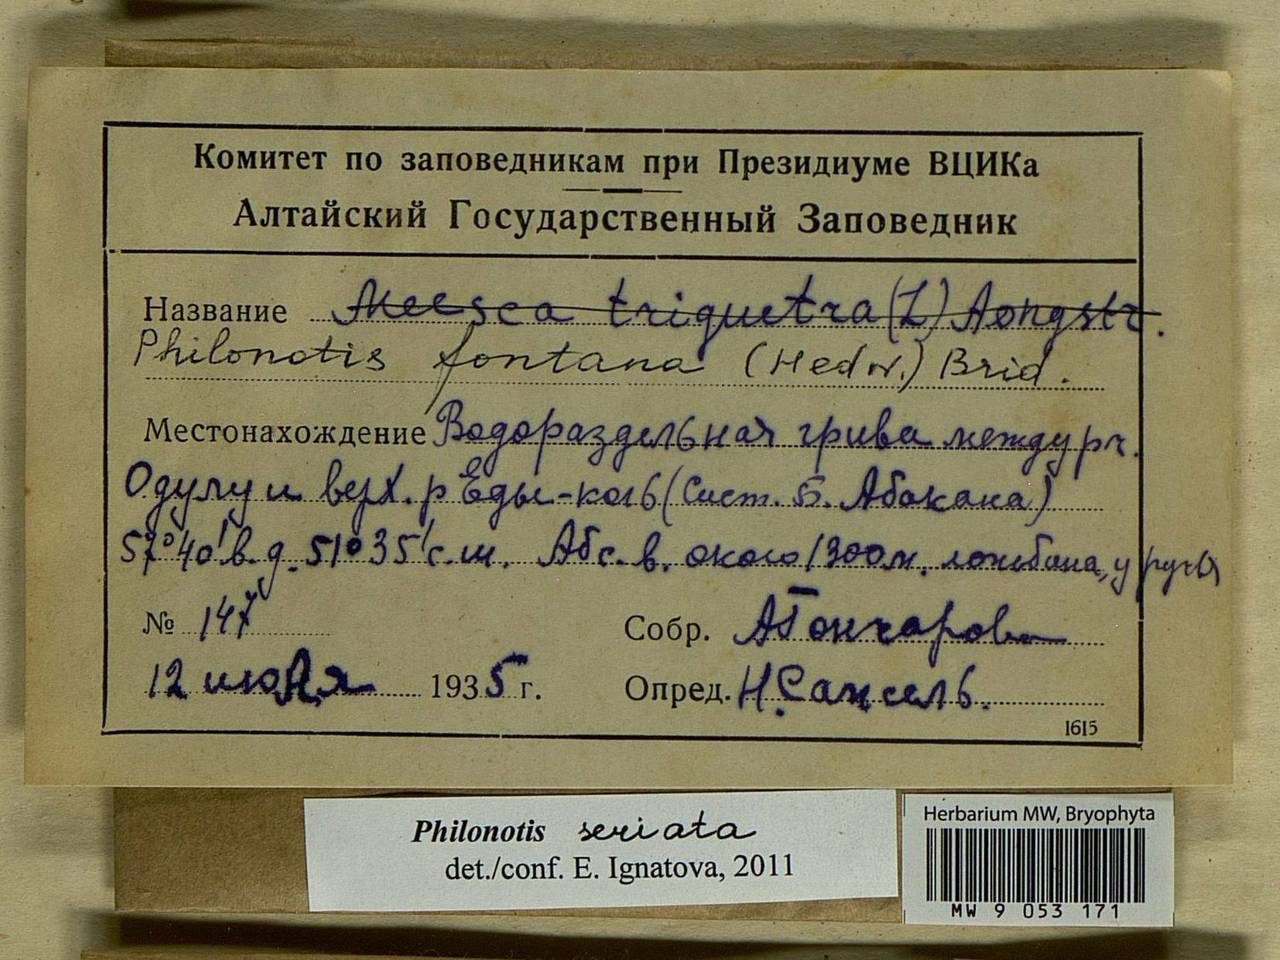 Комитет по заповедникам при Президиуме ВЦИКа
Алтайский Государственный Заповедник
Название Meesea triquetra (L) Aongstr.
Philonotis fontana (Hedw.) Brid.
Местонахождение Водораздельная грива между рч.
Одулу и верх. р Еды-коль (Сист. Б. Абакана)
57°40' в.д. 51°35' с.ш. Абс. в. около 1300 м. ложбина, у ручья
№ 147
Собр. А Гончарова
12 июля 1935 г.
Опред. Н. Самсель.
1615
Philonotis seriata
det./conf. E. Ignatova, 2011
Herbarium MW, Bryophyta
MW 9 053 171